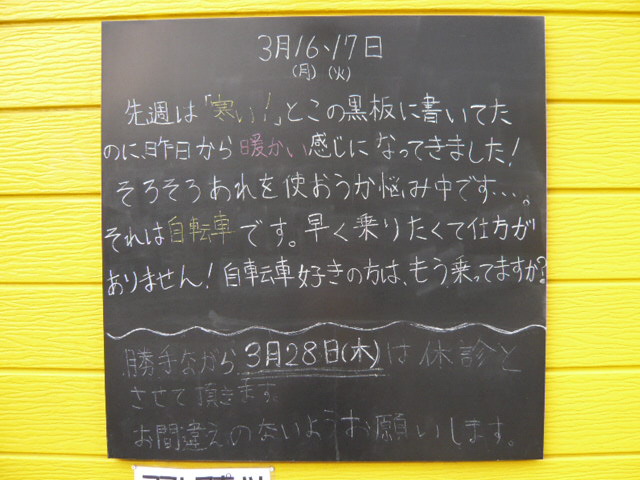 3月16、17日
(月)(火)
先週は「寒い!」とこの黒板に書いてた
のに、昨日から暖かい感じになってきました!
そろそろあれを使おうか悩み中です…。
それは自転車です。早く乗りたくて仕方が
ありません!自転車好きの方は、もう乗ってますか?
勝手ながら3月28日(木)は休診と
させて頂きます。
お間違えのないようお願いします。